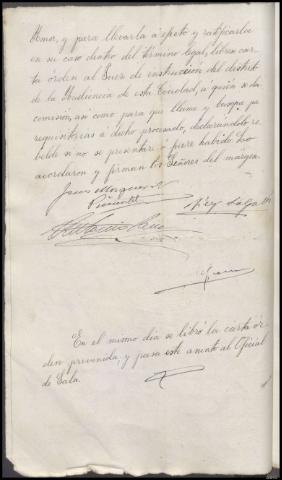 y para llevarla á efecto y ratificarlo
en su caso dentro del término legal, líbrese car-
ta órden al Juez de instruccion del distrito
de la Audiencia de esta Ciudad, á quien se da
comisión, así como para que llame y busque por
requisitorias á dicho procesado, declarándole re-
belde si no se presentare ó fuere habido. Lo
acordaron y firman los Señores del márgen.
En el mismo dia se libró la carta ór-
den prevenida, y para este anoto al Oficial
de Sala.